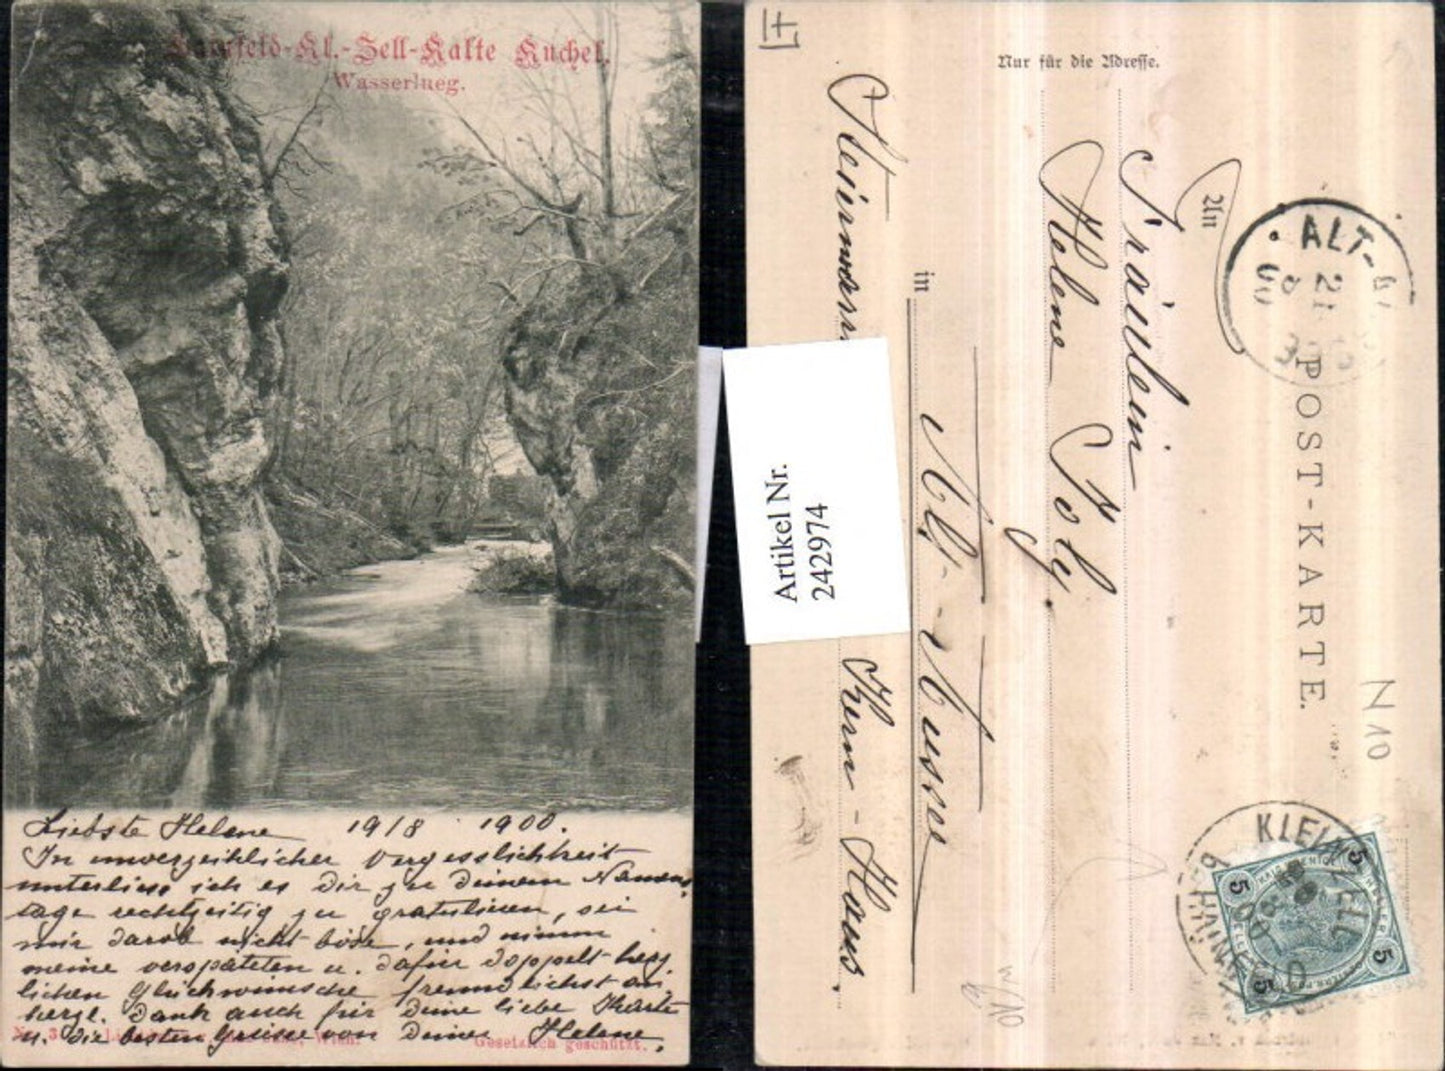 Hainfeld-Kl.-Zell-Kalte Kuchel.
Wasserlueg.
Liebste Helene 19/8 1900.
In unverzeihlicher Vergesslichkeit
unterliess ich es Dir zu Deinem Namens
tage rechtzeitig zu gratulieren, sei
mir darob nicht böse, und nimm
meine verspäteten u. dafür doppelt herz
lichen Glückwünsche freundlichst an
Dank auch für Deine liebe Karte
u. die besten Grüsse von Deiner Helene.
Wien.
Gesetzlich geschützt.
Nur für die Adresse.
An
POST-KARTE.
Fräulein
Helene Poly.
in
Alt-Aussee
Kern-Haus.
Artikel Nr.
242974
ALT-
21
8
00
KLEINZELL
BEI HAINFELD
20
8
00
5
5
5
5
N10